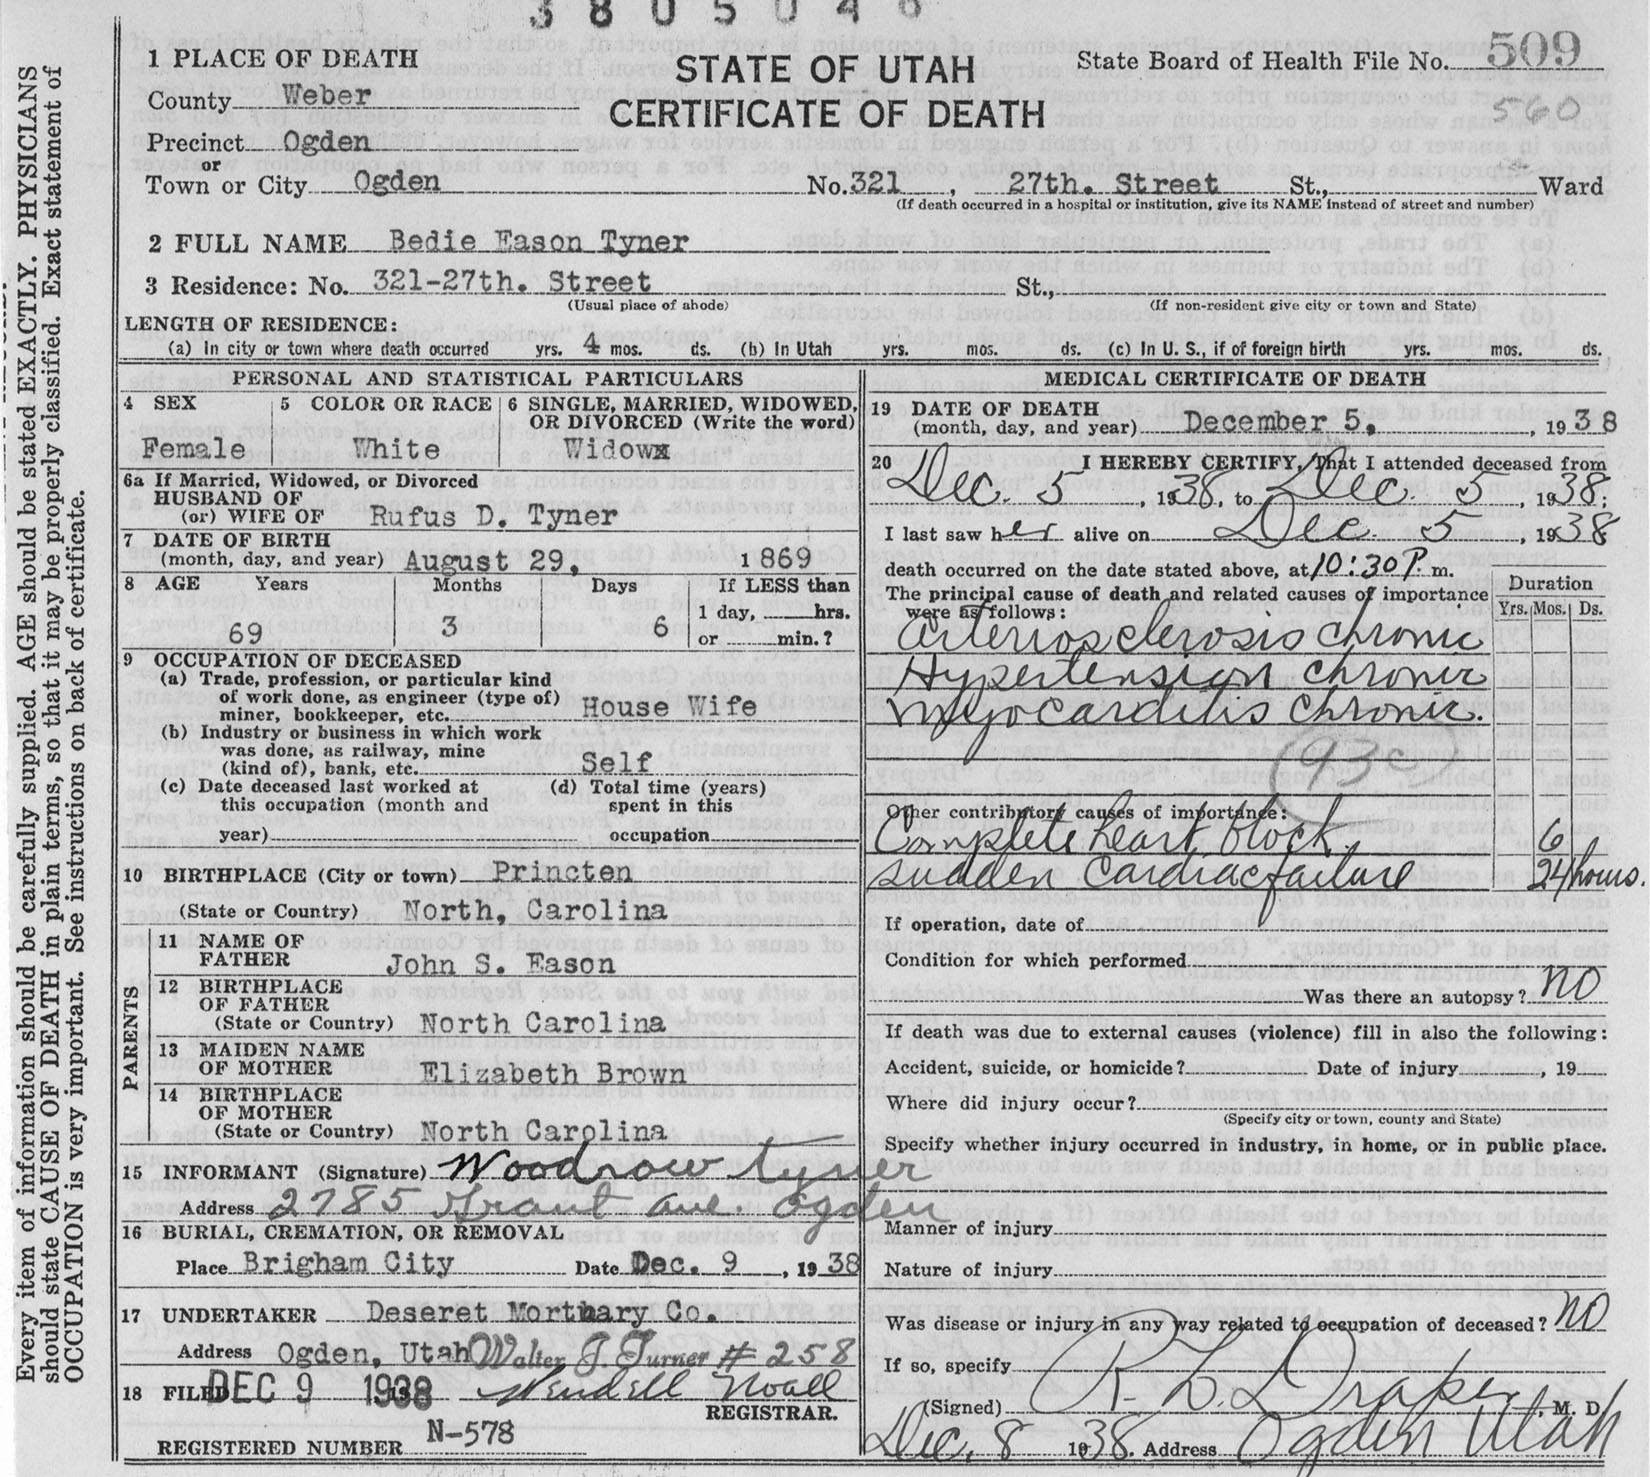 3805046
1 PLACE OF DEATH
STATE OF UTAH
CERTIFICATE OF DEATH
State Board of Health File No. 509
560
County Weber
Precinct Ogden
or
Town or City Ogden No. 321, 27th. Street St., Ward
(If death occurred in a hospital or institution, give its NAME instead of street and number)
2 FULL NAME Bedie Eason Tyner
3 Residence: No. 321-27th. Street St.,
(Usual place of abode) (If non-resident give city or town and State)
LENGTH OF RESIDENCE:
(a) In city or town where death occurred yrs. 4 mos. ds. (b) In Utah yrs. mos. ds. (c) In U. S., if of foreign birth yrs. mos. ds.
PERSONAL AND STATISTICAL PARTICULARS
4 SEX 5 COLOR OR RACE 6 SINGLE, MARRIED, WIDOWED,
OR DIVORCED (Write the word)
Female White Widowx
6a If Married, Widowed, or Divorced
HUSBAND OF
(or) WIFE OF Rufus D. Tyner
7 DATE OF BIRTH
(month, day, and year) August 29, 1869
8 AGE Years Months Days If LESS than
1 day, hrs.
69 3 6 or min.?
9 OCCUPATION OF DECEASED
(a) Trade, profession, or particular kind
of work done, as engineer (type of)
miner, bookkeeper, etc. House Wife
(b) Industry or business in which work
was done, as railway, mine
(kind of), bank, etc. Self
(c) Date deceased last worked at (d) Total time (years)
this occupation (month and spent in this
year) occupation
10 BIRTHPLACE (City or town) Princten
(State or Country) North, Carolina
PARENTS
11 NAME OF
FATHER John S. Eason
12 BIRTHPLACE
OF FATHER
(State or Country) North Carolina
13 MAIDEN NAME
OF MOTHER Elizabeth Brown
14 BIRTHPLACE
OF MOTHER
(State or Country) North Carolina
15 INFORMANT (Signature) Woodrow Tyner
Address 2785 Grant ave. Ogden
16 BURIAL, CREMATION, OR REMOVAL
Place Brigham City Date Dec. 9, 1938
17 UNDERTAKER Deseret Mortuary Co.
Address Ogden, Utah Walter J. Turner # 258
18 FILED DEC 9 1938 Wendell Noall
REGISTRAR.
REGISTERED NUMBER N-578
MEDICAL CERTIFICATE OF DEATH
19 DATE OF DEATH
(month, day, and year) December 5, 1938
20 I HEREBY CERTIFY, That I attended deceased from
Dec. 5, 1938, to Dec. 5 1938;
I last saw her alive on Dec. 5, 1938
death occurred on the date stated above, at 10:30 P. m.
The principal cause of death and related causes of importance
were as follows:
Duration
Yrs. Mos. Ds.
Arteriosclerosis chronic
Hypertension chronic
Myocarditis chronic.
93c
Other contributory causes of importance:
Complete heart block 6
sudden cardiac failure 24 hours.
If operation, date of
Condition for which performed
Was there an autopsy? NO
If death was due to external causes (violence) fill in also the following:
Accident, suicide, or homicide? Date of injury, 19
Where did injury occur?
(Specify city or town, county and State)
Specify whether injury occurred in industry, in home, or in public place.
Manner of injury
Nature of injury
Was disease or injury in any way related to occupation of deceased? NO
If so, specify
(Signed) R. L. Draper, M. D.
Dec. 8 1938. Address Ogden Utah
Every item of information should be carefully supplied. AGE should be stated EXACTLY. PHYSICIANS
should state CAUSE OF DEATH in plain terms, so that it may be properly classified. Exact statement of
OCCUPATION is very important. See instructions on back of certificate.